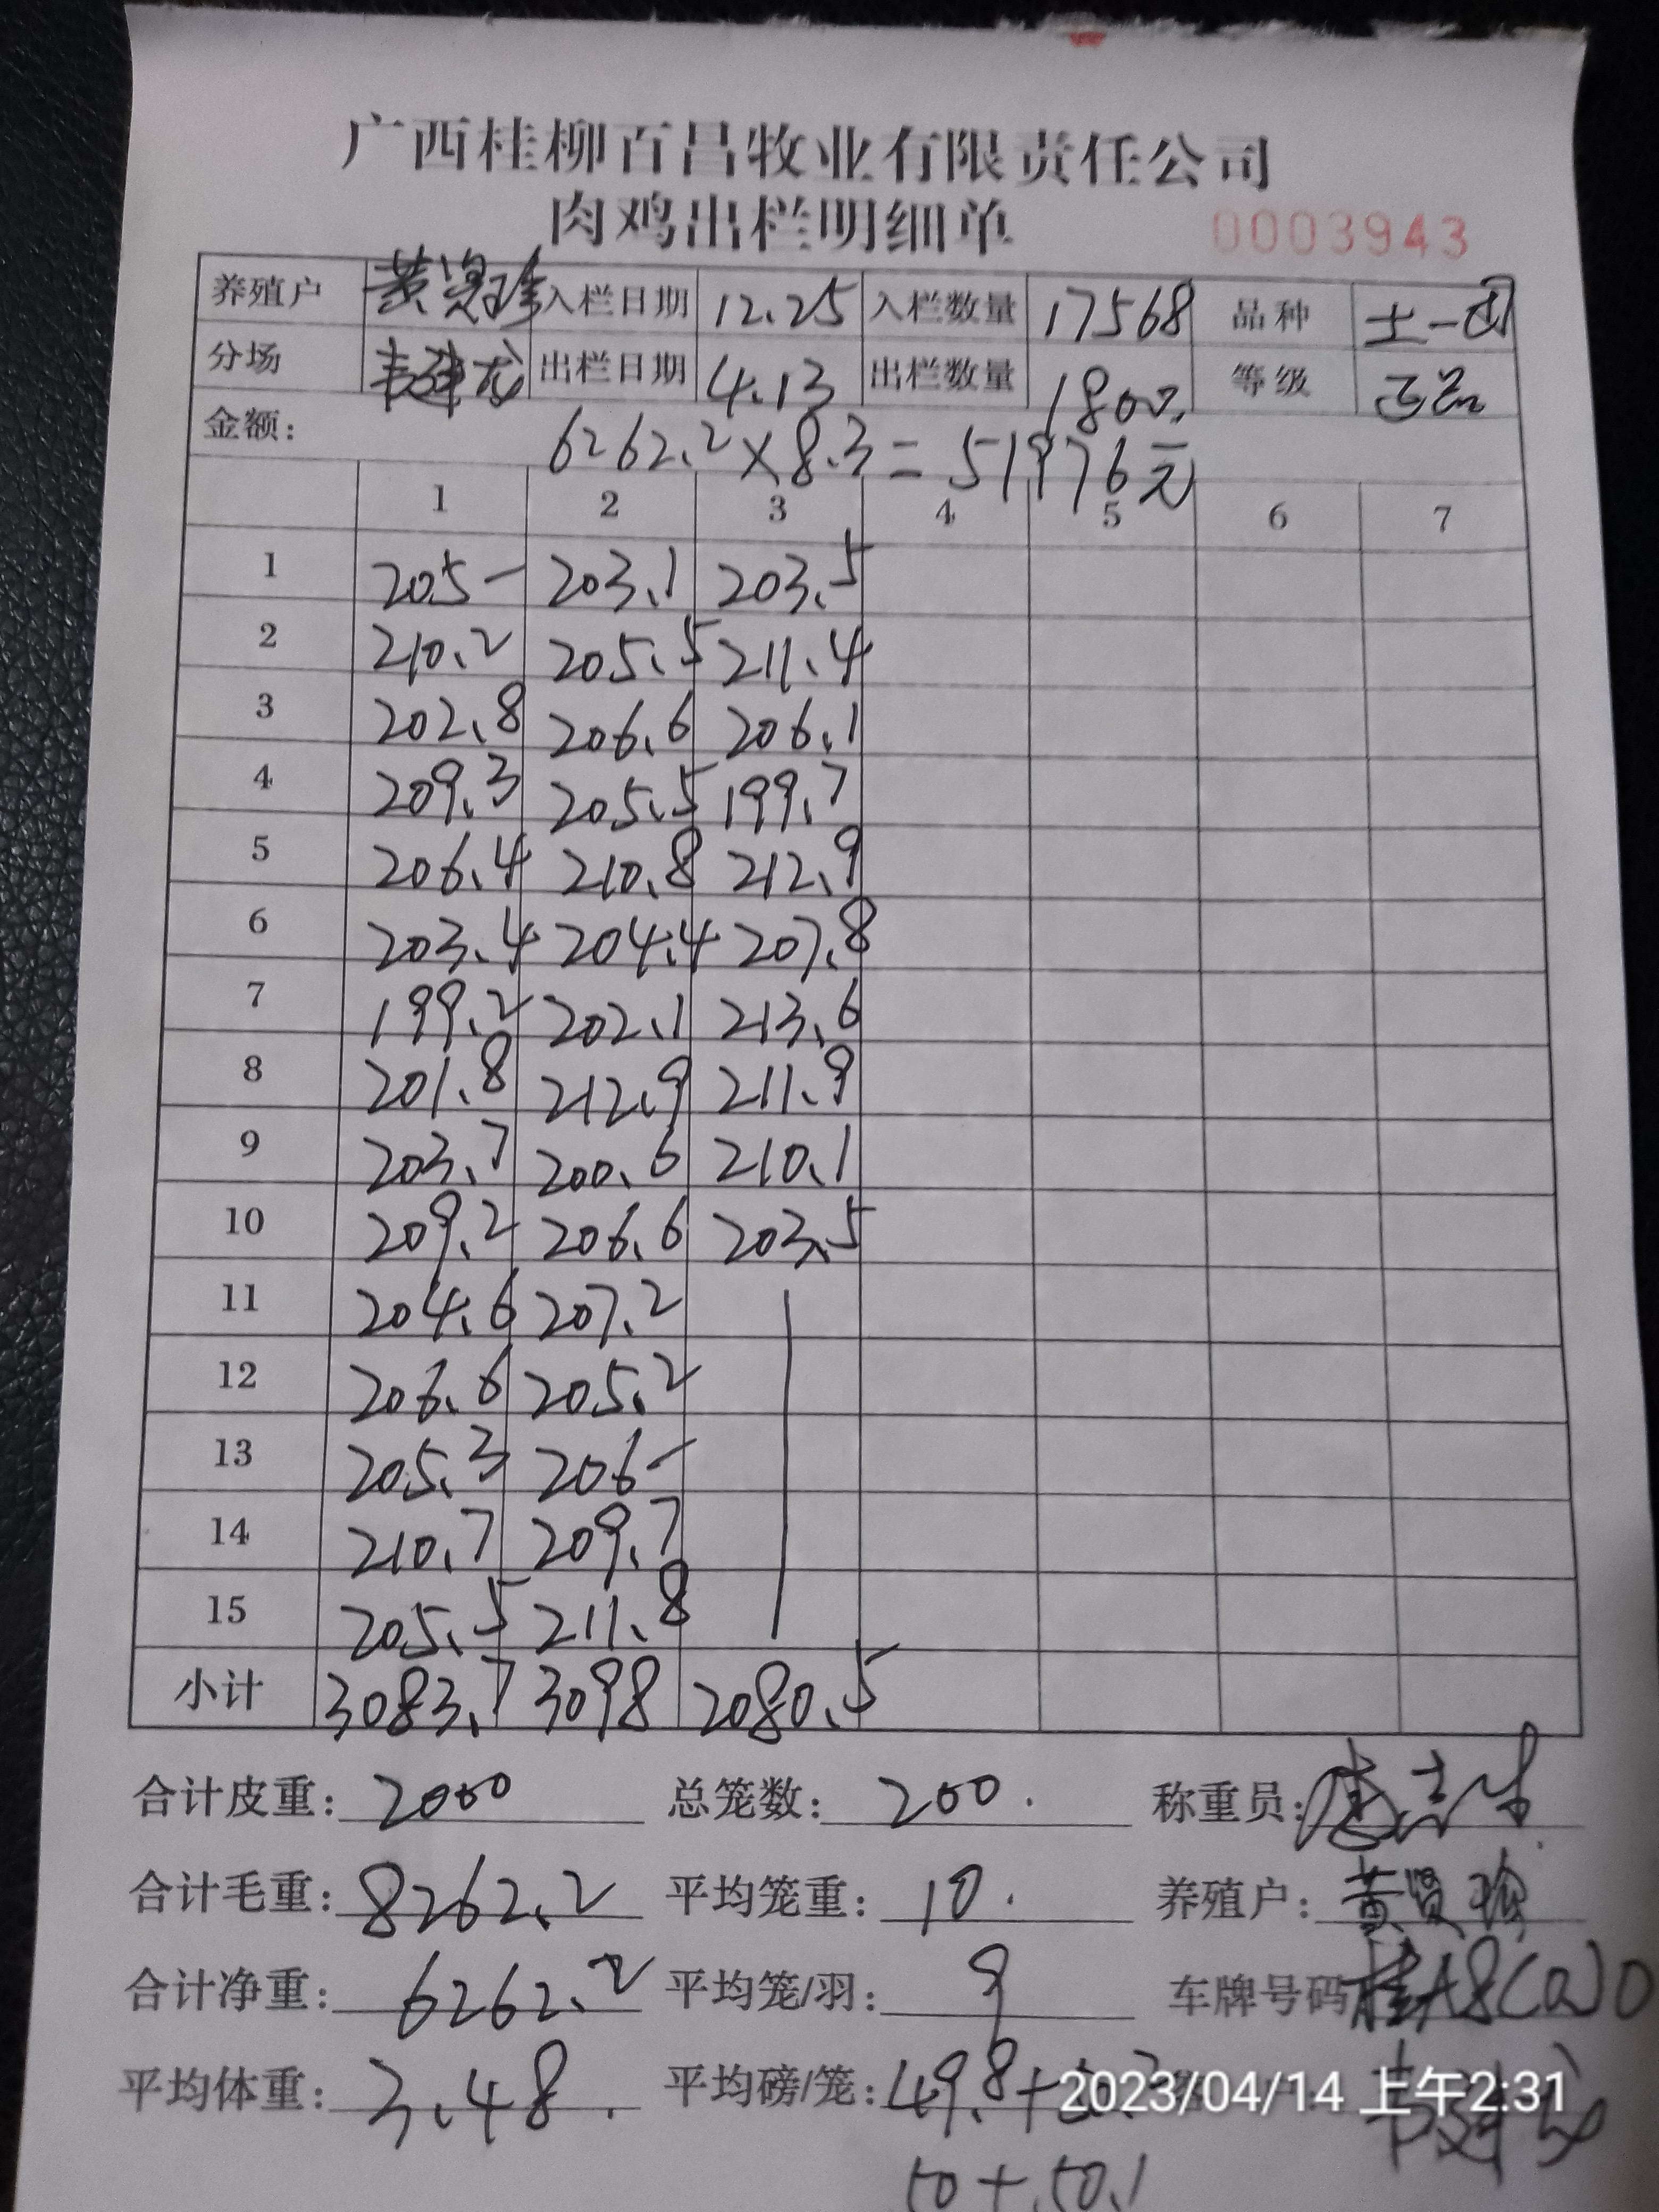 广西桂柳百昌牧业有限责任公司
肉鸡出栏明细单 0003943
养殖户 黄贤珍 入栏日期 12.25 入栏数量 17568 品种 土一
分场 韦建龙 出栏日期 4.13 出栏数量 1800. 等级 正品
金额: 6262.2×8.3=51976元
1 2 3 4 5 6 7
1 205- 203.1 203.5
2 210.2 205.5 211.4
3 202.8 206.6 206.1
4 209.3 205.5 199.7
5 206.4 210.8 212.9
6 203.4 204.4 207.8
7 199.2 202.1 213.6
8 201.8 212.9 211.9
9 203.7 200.6 210.1
10 209.2 206.6 203.5
11 204.6 207.2
12 206.6 205.2
13 205.3 206-
14 210.7 209.7
15 205.5 211.8
小计 3083.7 3098 2080.5
合计皮重: 2000 总笼数: 200. 称重员:
合计毛重: 8262.2 平均笼重: 10. 养殖户: 黄贤珍
合计净重: 6262.2 平均笼/羽: 9 车牌号码 桂A8
平均体重: 3.48. 平均磅/笼: 49.8+
2023/04/14 上午2:31
50+50.1